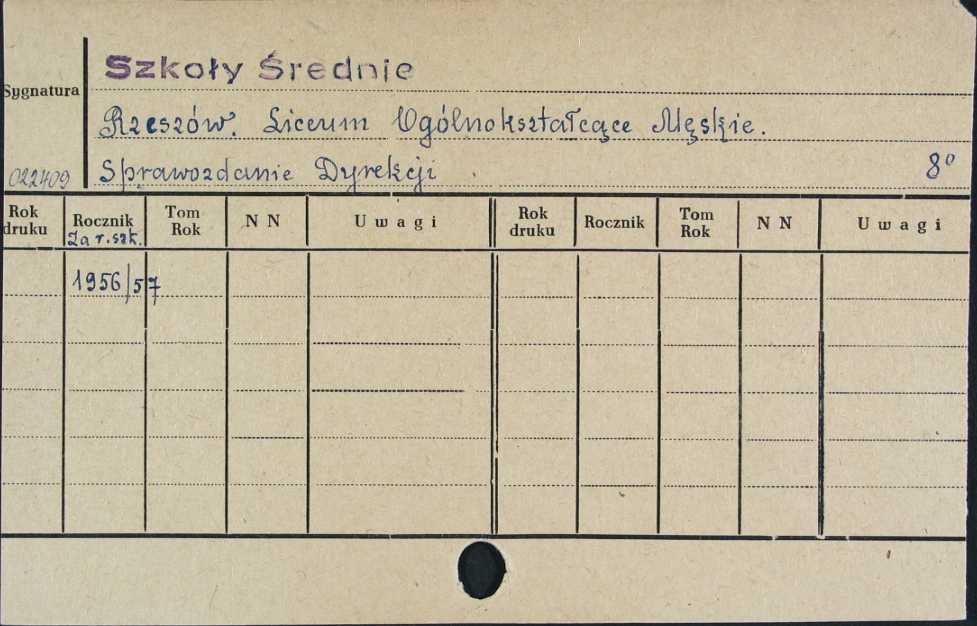 Szkoły Średnie
Sygnatura
Rzeszów. Liceum Ogólnokształcące Męskie.
022409 Sprawozdanie Dyrekcji 8º
Rok druku Rocznik Za r. szk. Tom Rok N N Uwagi Rok druku Rocznik Tom Rok N N Uwagi
1956/57